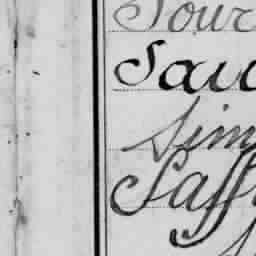 Sour
Sau
Sim
Saff